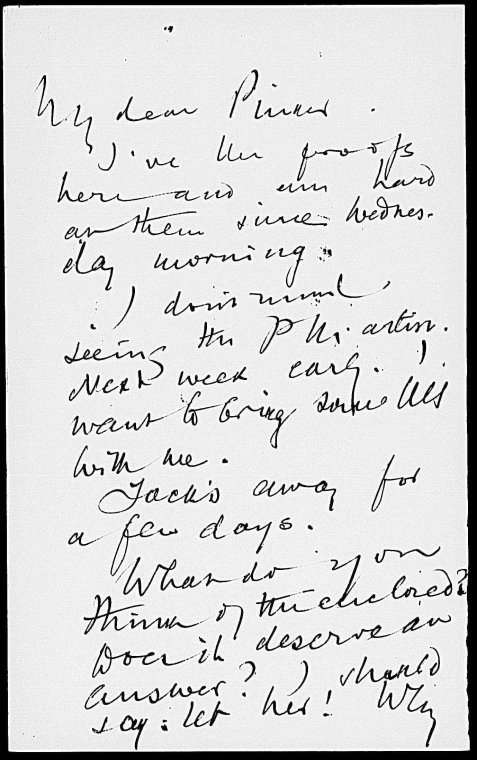 My dear Pinker.
I've the proofs
here and am hard
at them since Wednes-
day morning.
I don't mind
seeing the P M. artist.
Next week early. I
want to bring some MS
with me.
Jack's away for
a few days.
What do you
think of the enclosed?
Does it deserve an
answer? I should
say: let her! Why